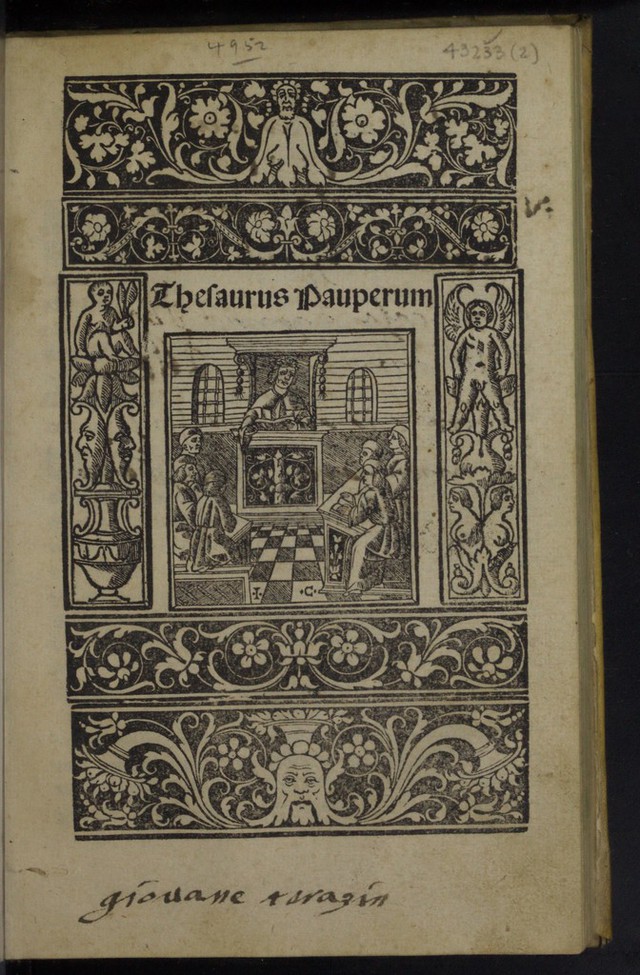 4952
43233(2)
Thesaurus Pauperum
I. .C.
giouane